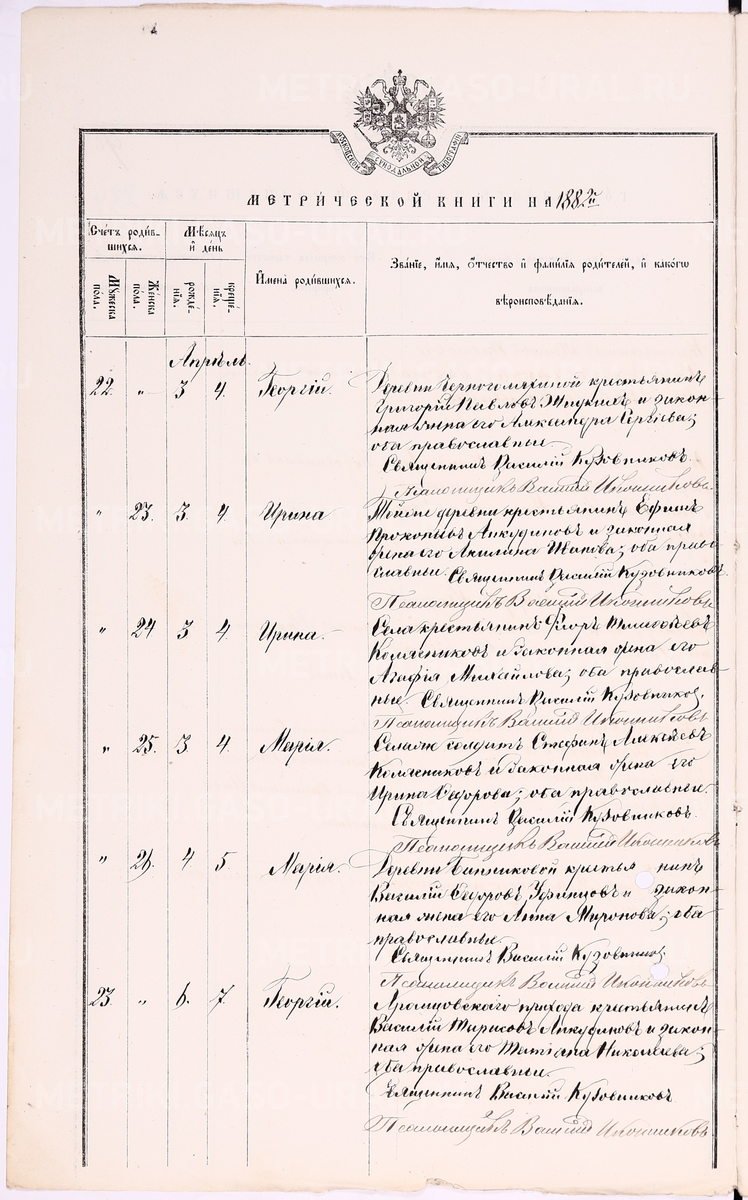 МОСКОВСКОЙ СѴНОДАЛЬНОЙ ТИПОГРАФІИ
МЕТРИЧЕСКОЙ КНИГИ НА 1882й
Счетъ родив-
шихся.
Мѣсяцъ
и день
Имена родившихся.
Званіе, имя, отчество и фамилія родителей, и какого
вѣроисповѣданія.
Мужеска пола.
Женска пола.
рожде-
нія.
креще-
нія.
Апрѣль.
22. " 3 4. Георгій. Деревни Черноголяхиной крестьянинъ
Григорій Павловъ и закон-
ная жена его Александра Сергѣева;
оба православные
Священникъ Василій Кузовниковъ.
Псаломщикъ Василій Иконниковъ.
" 23. 3. 4. Ирина Тойже деревни крестьянинъ Ефимъ
Прокопьевъ Анкудиновъ и законная
жена его Акилина Иванова; оба право-
славные. Священникъ Василій Кузовниковъ
Псаломщикъ Василій Иконниковъ
" 24 3 4. Ирина. Села крестьянинъ Флоръ
Колясниковъ и законная жена его
Агафія Михайлова; оба православ-
ные. Священникъ Василій Кузовников.
Псаломщикъ Василій Иконниковъ
" 25. 3 4. Марія. Села же солдатъ Стефанъ Алексѣевъ
Колясниковъ и законная жена его
Ирина Ѳедорова; оба православные.
Священникъ Василій Кузовниковъ.
Псаломщикъ Василій Иконниковъ
" 26. 4 5. Марія. Деревни крестьянинъ
Василій Ѳедоровъ Уфинцовъ и закон-
ная жена его Анна Миронова; оба
православные.
Священникъ Василій Кузовников.
Псаломщикъ Василій Иконниковъ
23. " 6. 7. Георгій. прихода крестьянинъ
Василій Анкудиновъ и закон-
ная жена его Татіана Николаева;
оба православные.
Священникъ Василій Кузовниковъ
Псаломщикъ Василій Иконниковъ